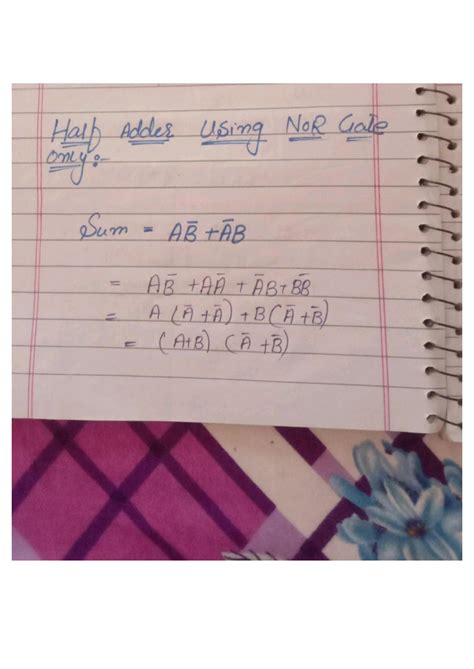 Half Adder Using NOR Gate
only:-
Sum = AB̅ + A̅B
= AB̅ + AA̅ + A̅B + BB̅
= A (A̅ + B̅) + B (A̅ + B̅)
= (A+B) (A̅ + B̅)